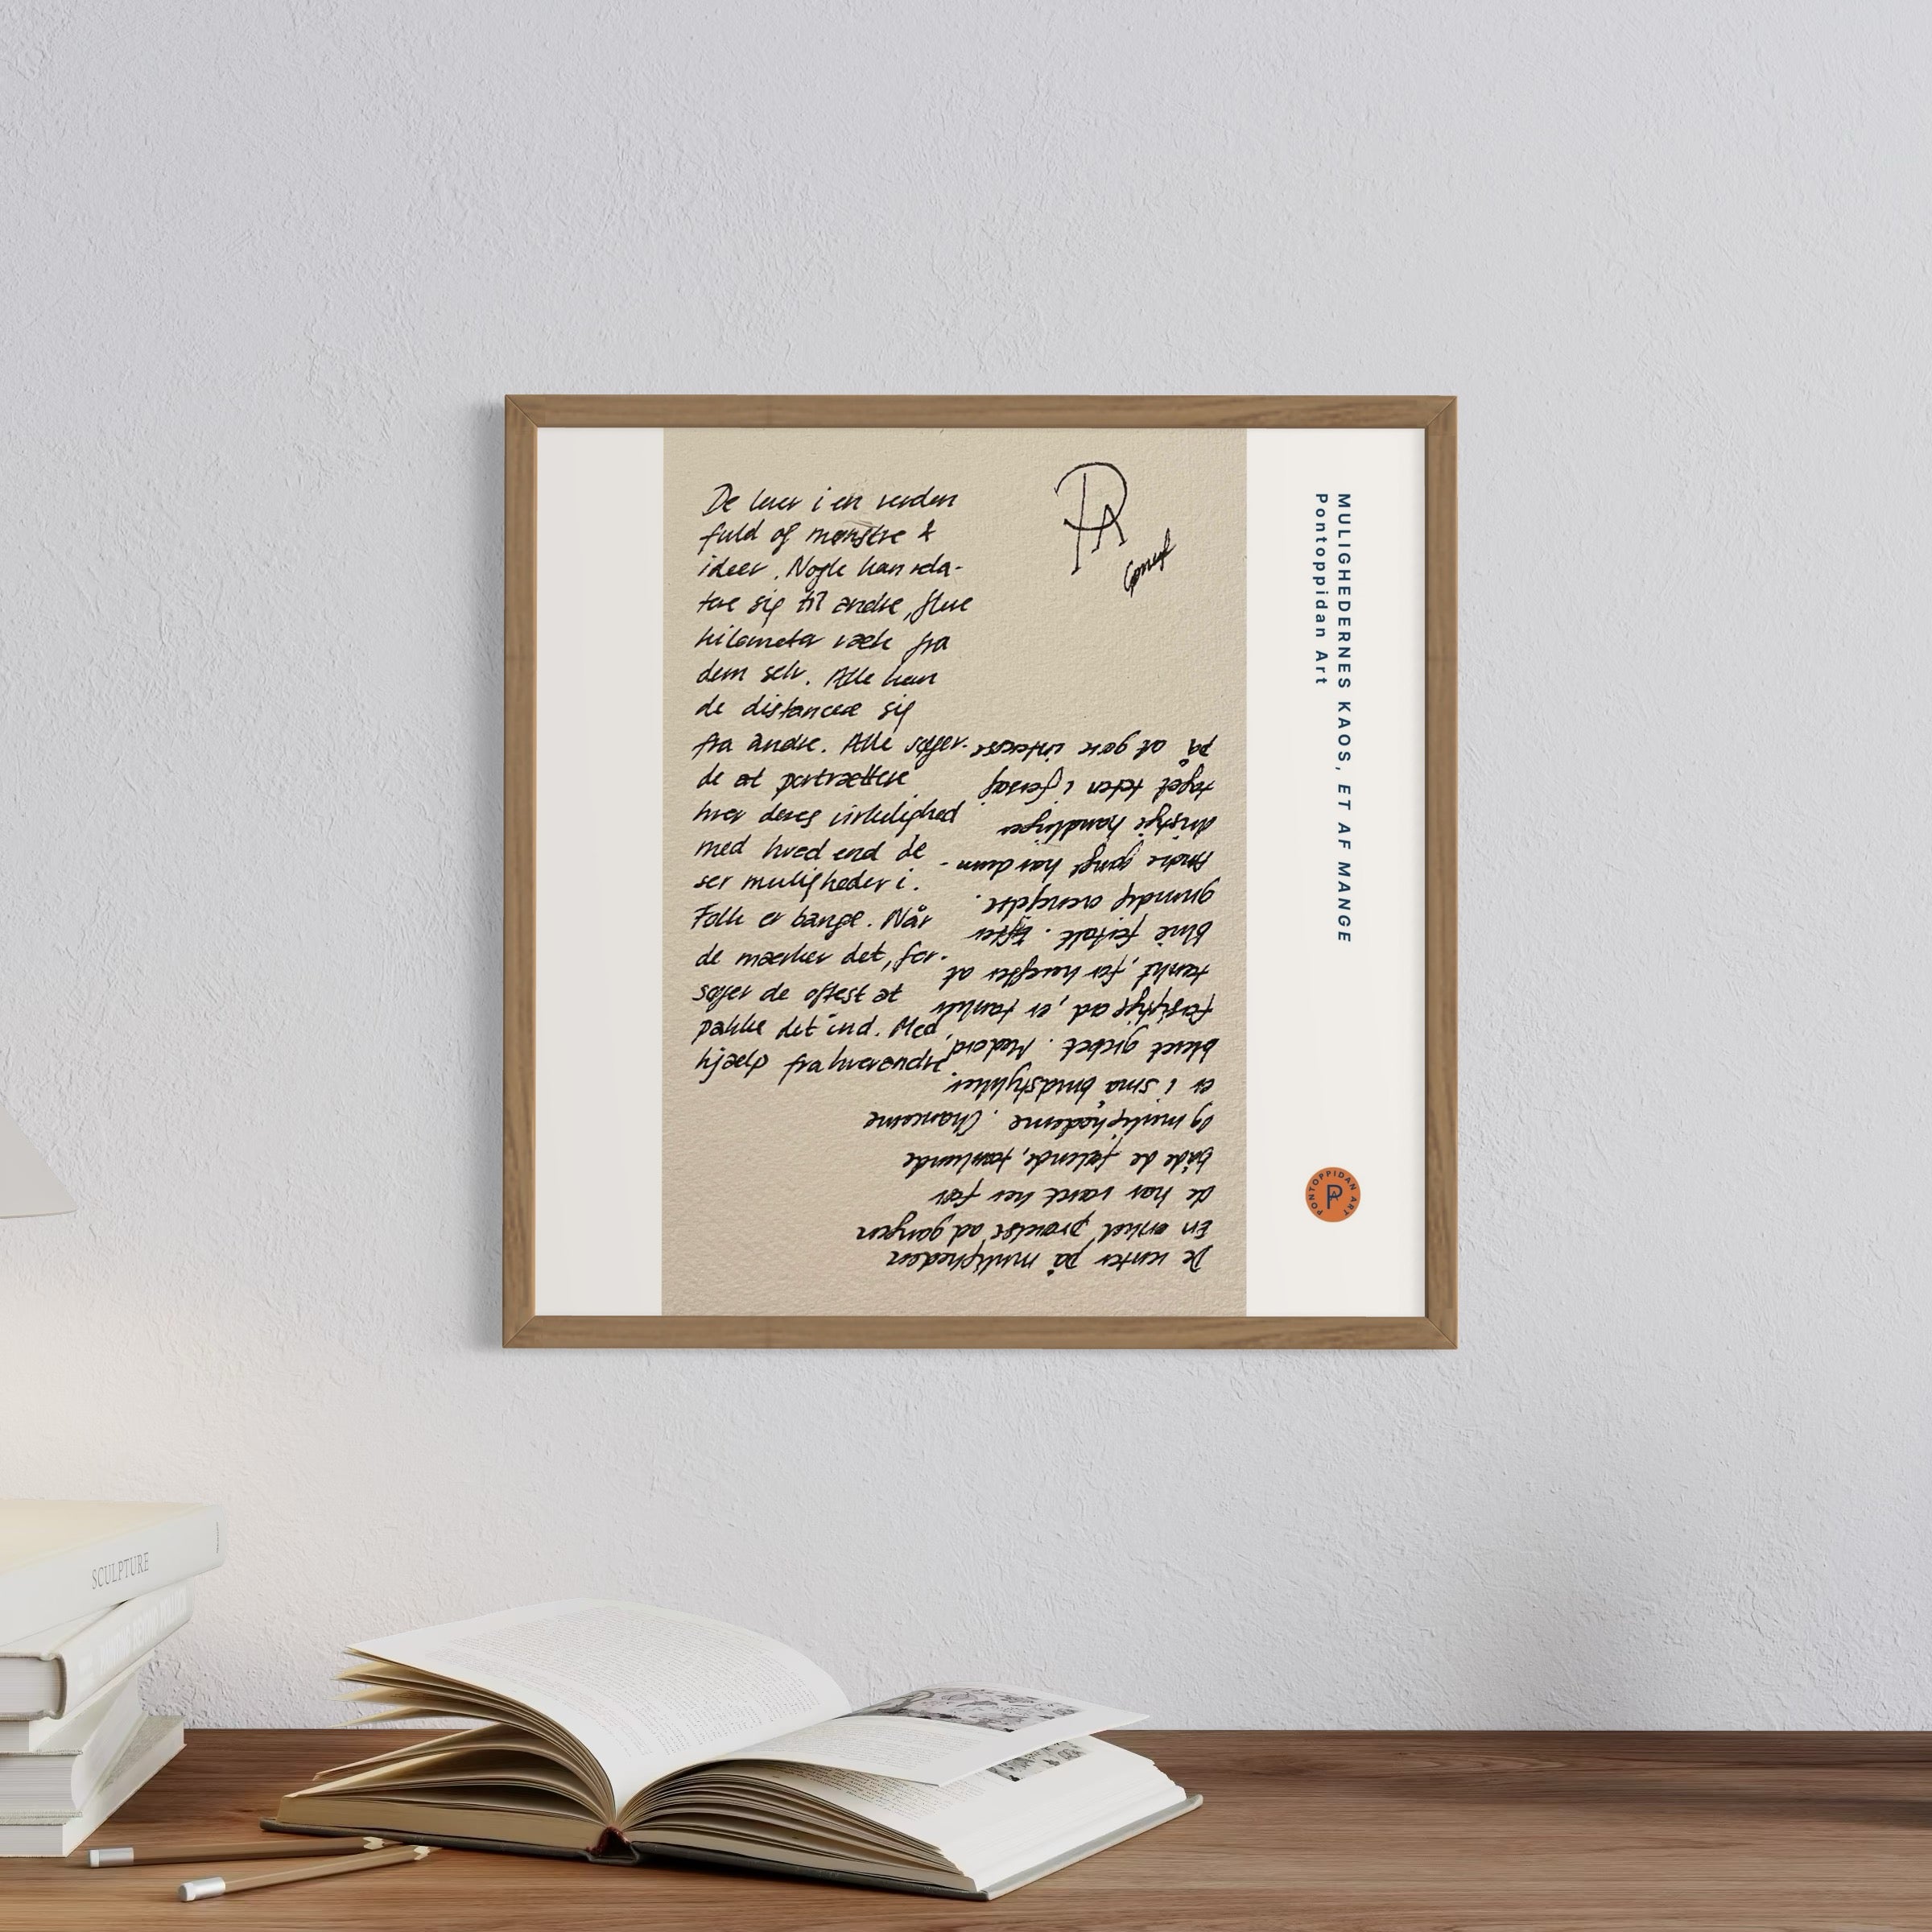 De lever i en verden
fuld af mønstre &
ideer. Nogle kan rela-
tere sig til andre, flere
kilometer væk fra
dem selv. Alle kan
de distancere sig
fra andre. Alle søger
de at portrættere
hver deres virkelighed
med hvad end de
ser muligheder i.
Folk er bange. Når
de mærker det, for-
søger de oftest at
pakke det ind. Med
hjælp fra hverandre.
De venter på muligheden
En enkel prøvelse ad gangen
de har været her før
både de følende, tænkende
og mulighederne. Chancerne
er i små brudstykker
blevet grebet. Modord,
forsigtige ad, er tanken
tænkt, for herefter at
blive fortalt. Efter
grundig overvejelse.
Andre gange har dumdristige handlinger
taget teten i forsøg
på at gøre interesse
PA
MULIGHEDERNES KAOS, ET AF MANGE
Pontoppidan Art
PONTOPPIDAN ART
SCULPTURE